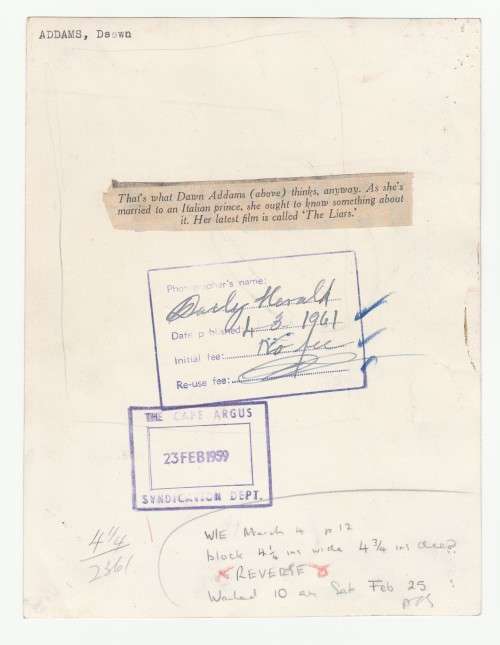 ADDAMS, Dawn
That's what Dawn Addams (above) thinks, anyway. As she's
married to an Italian prince, she ought to know something about
it. Her latest film is called 'The Liars.'
Photographer's name:
Daily Herald
Date published: 4 3 1961
Initial fee: No fee
Re-use fee:
THE CAPE ARGUS
23 FEB 1959
SYNDICATION DEPT.
4 1/4
2361
W/E March 4 p 12
block 4 1/4 ins wide 4 3/4 ins deep
REVERSE
Wanted 10 am Sat Feb 25